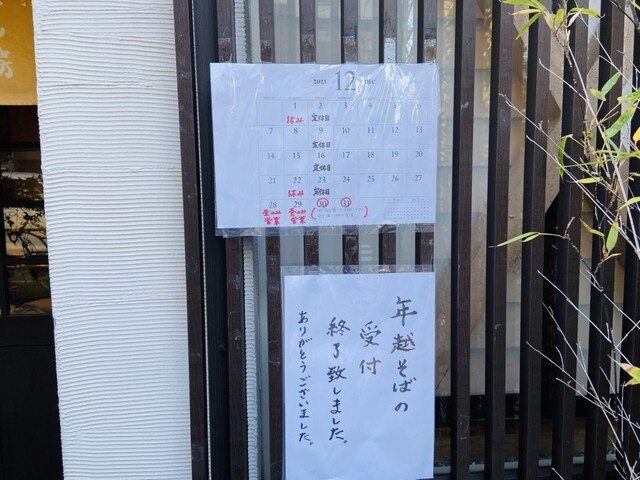 2025 12 DEC
1 2 3 4 5 6
休み 定休日
7 8 9 10 11 12 13
定休日
14 15 16 17 18 19 20
定休日
21 22 23 24 25 26 27
休み 定休日
28 29 30 31
昼のみ営業 昼のみ営業
年越そばの
受付
終了致しました。
ありがとうございました。